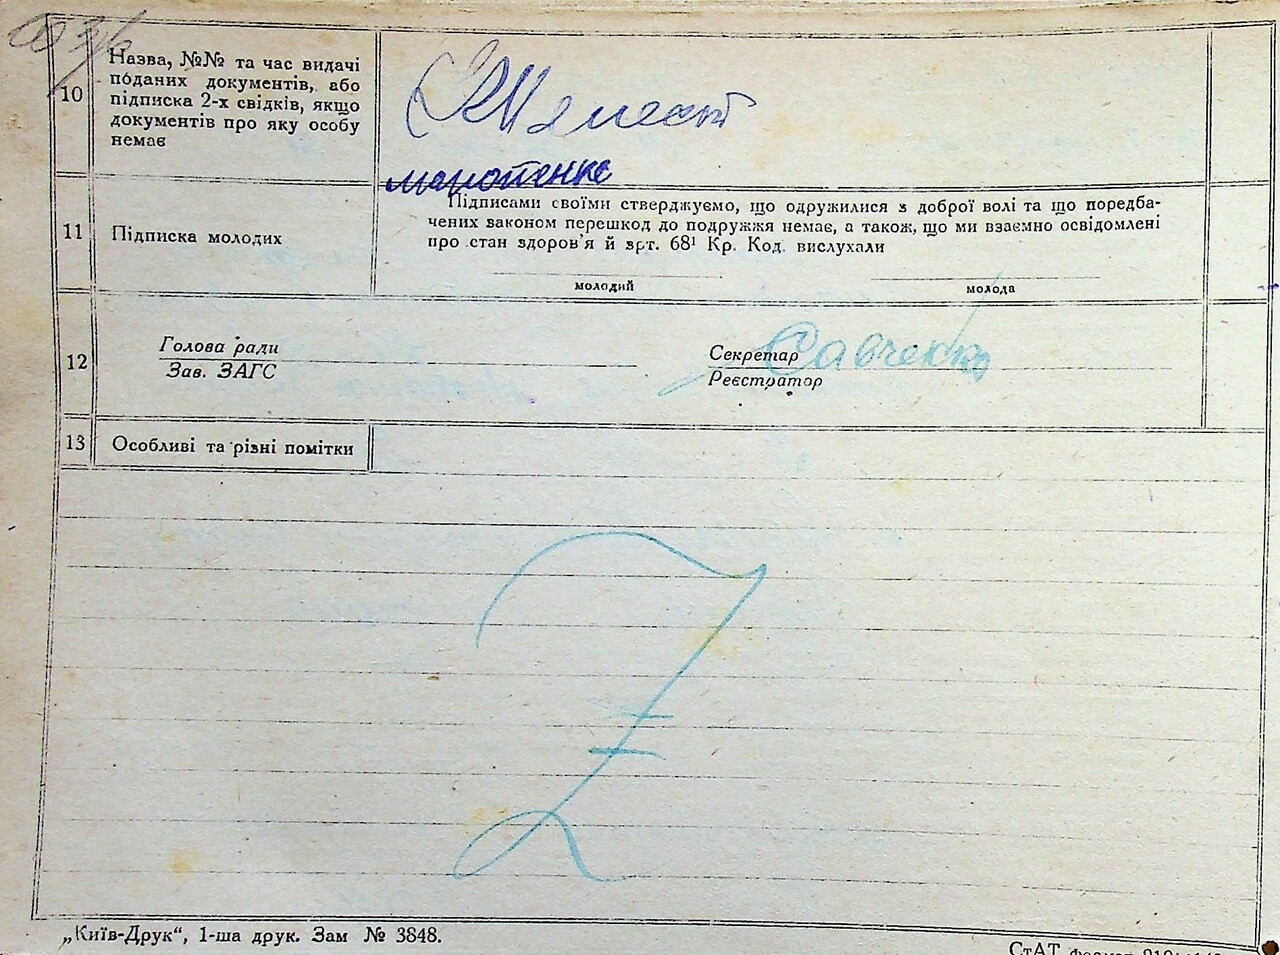 10
Назва, №№ та час видачі
поданих документів, або
підписка 2-х свідків, якщо
документів про яку особу
немає
11
Підписка молодих
Підписами своїми стверджуємо, що одружилися з доброї волі та що передба-
чених законом перешкод до подружжя немає, а також, що ми взаємно освідомлені
про стан здоров'я й зрт. 68¹ Кр. Код. вислухали
молодий
молода
12
Голова ради
Зав. ЗАГС
Секретар Савченко
Реєстратор
13
Особливі та різні помітки
„Київ-Друк“, 1-ша друк. Зам № 3848.
СтАТ